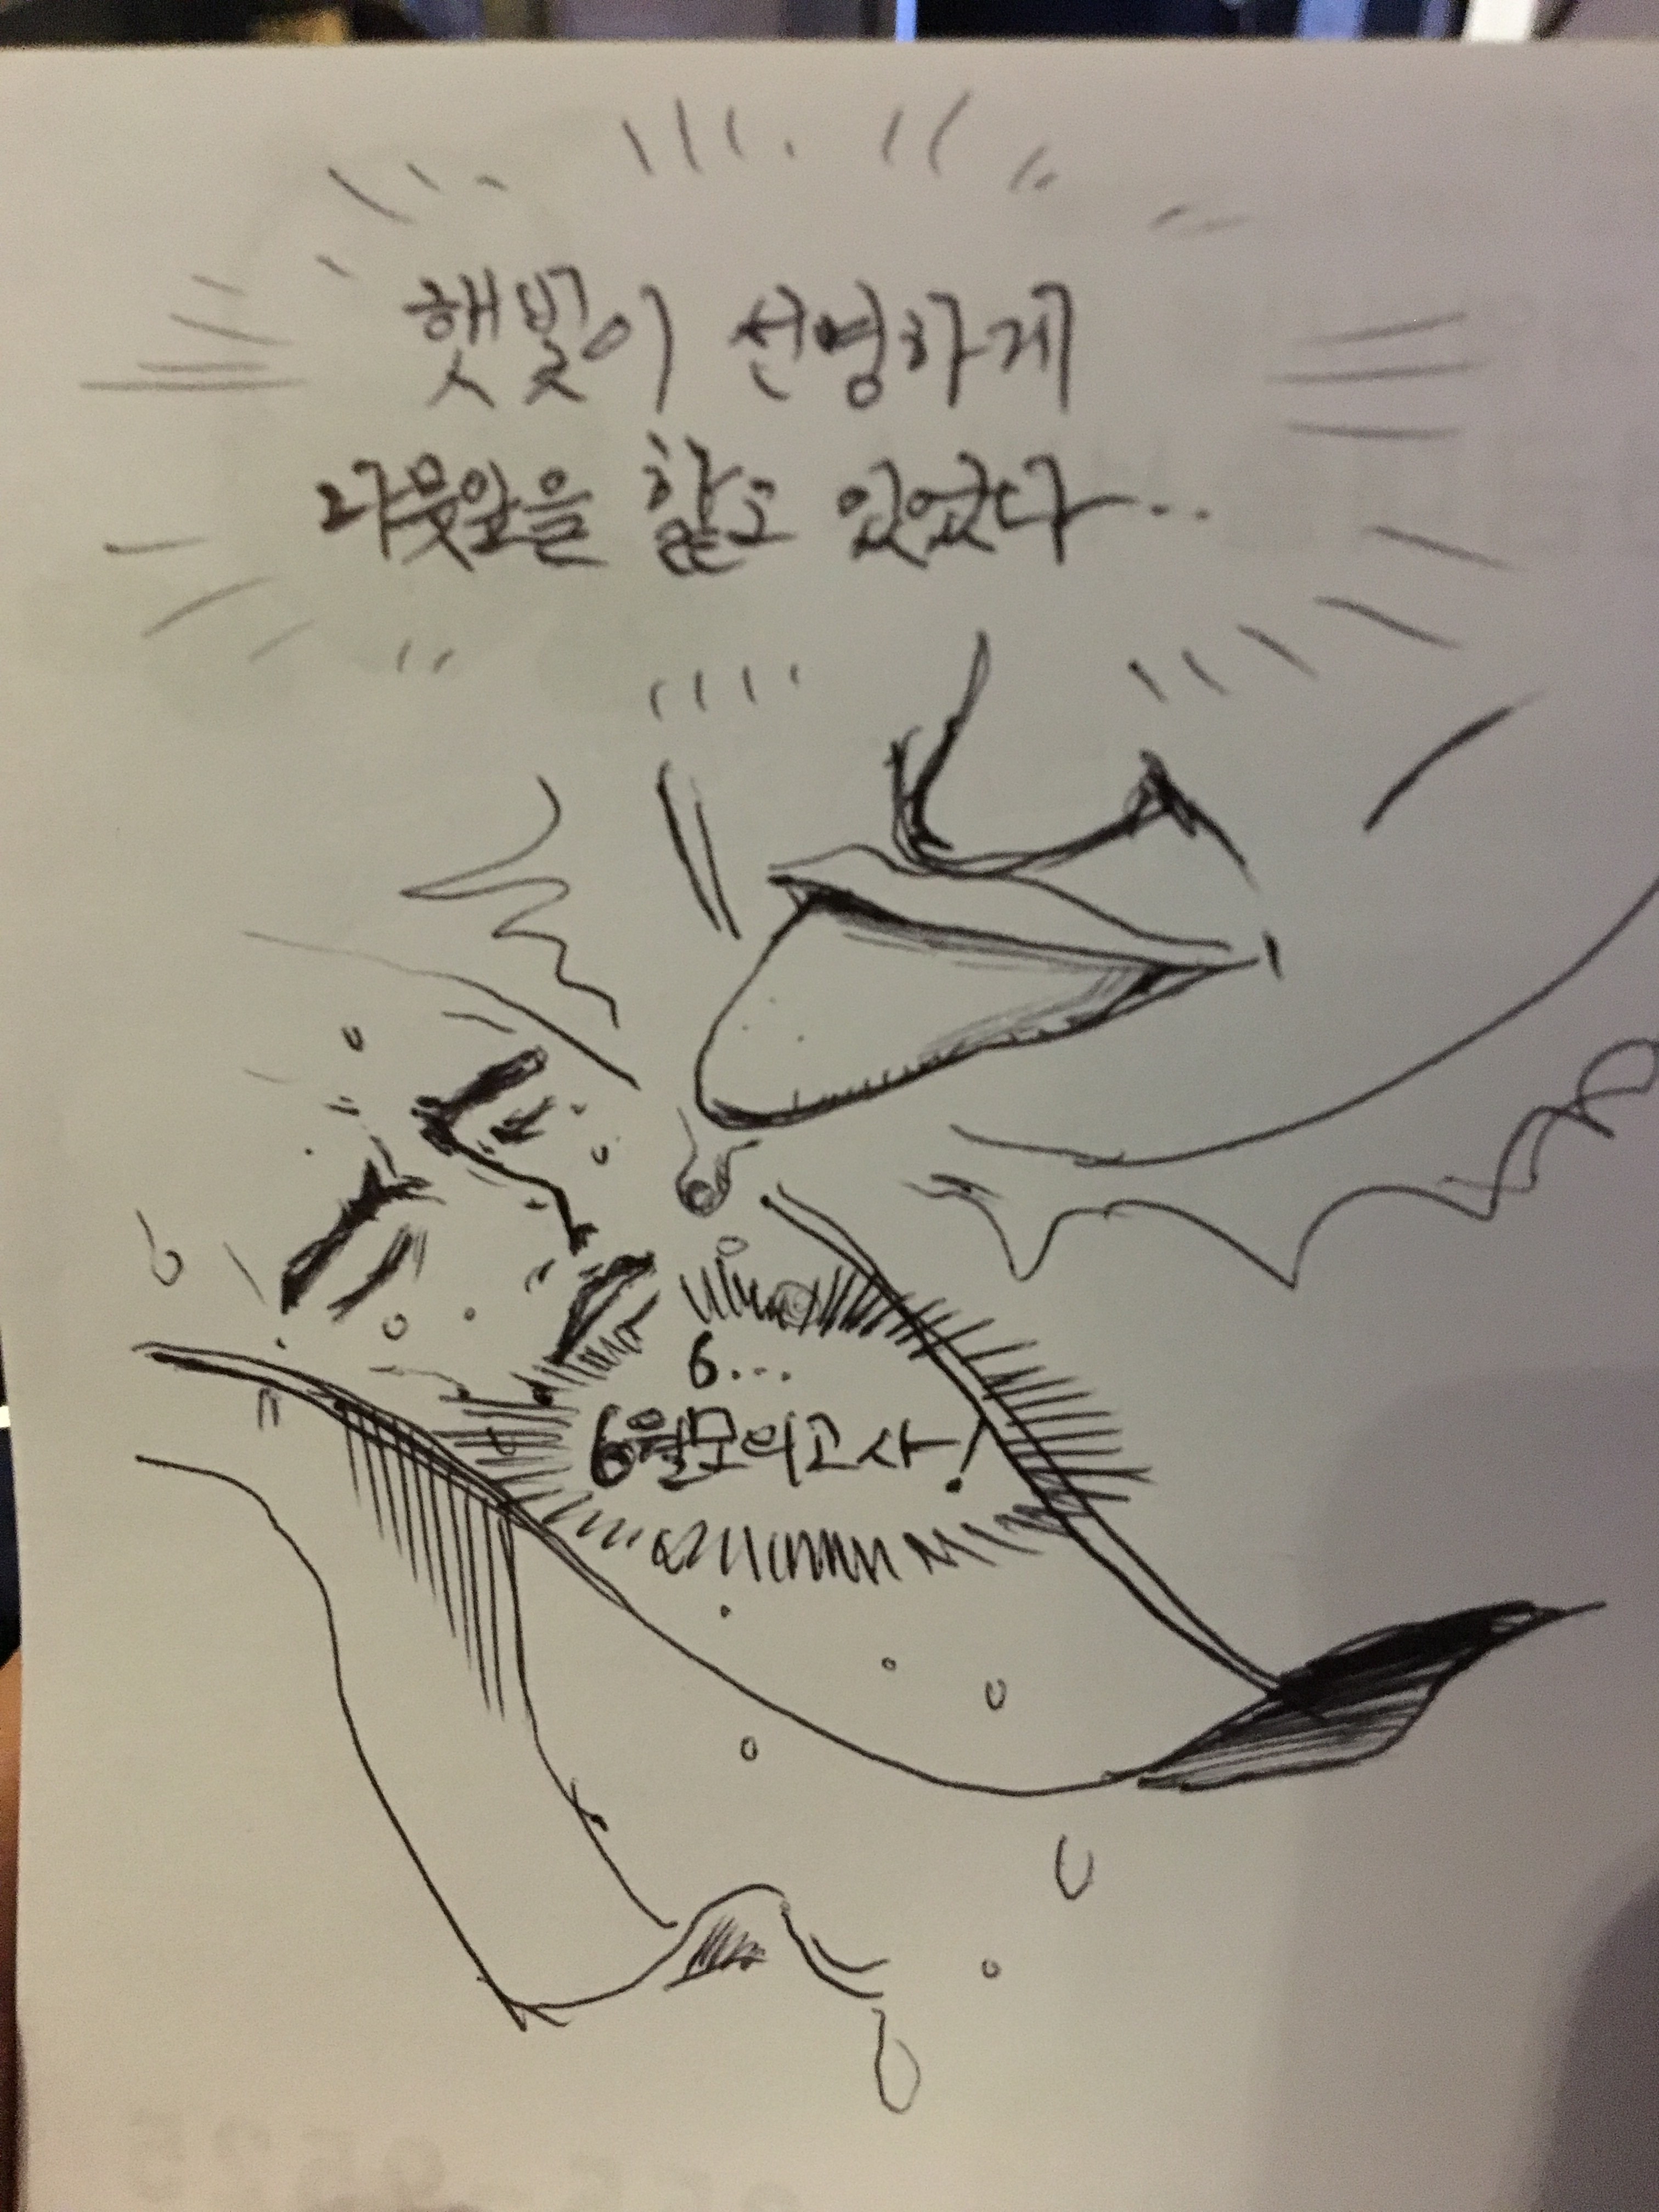 햇빛이 선명하게
나뭇잎을 핥고 있었다...
6...
6월모의고사!